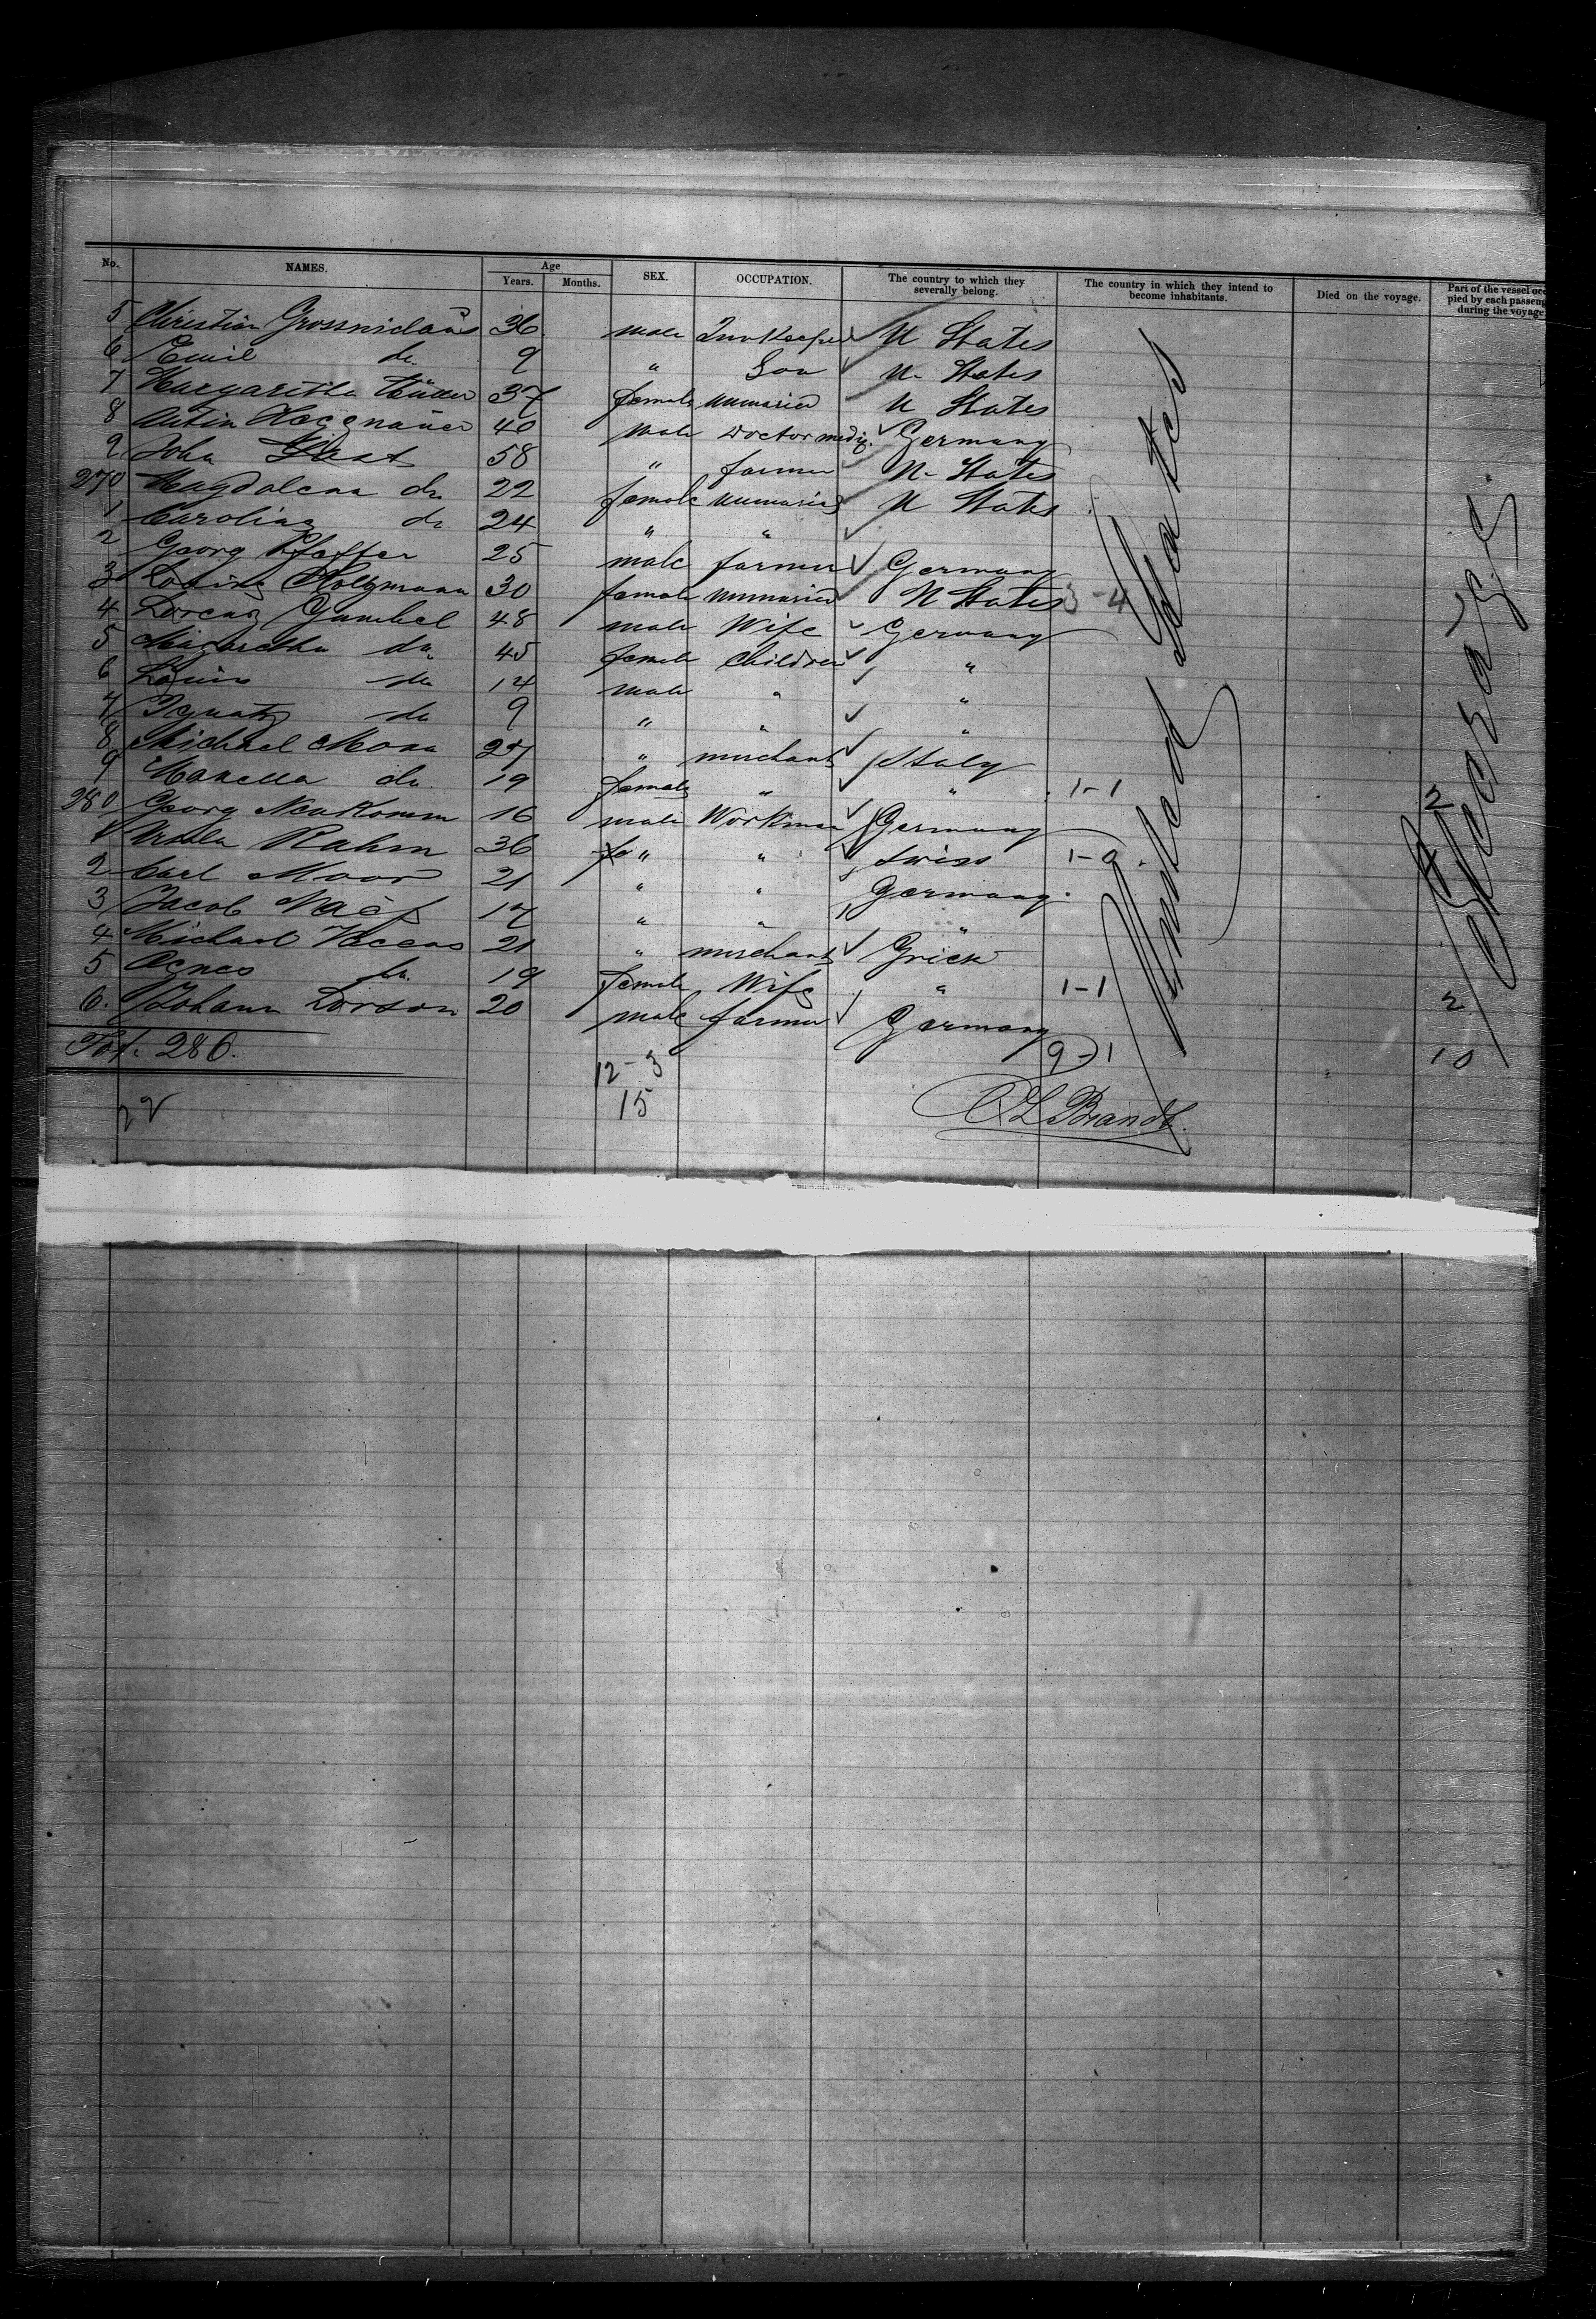 No. NAMES. Age Years. Months. SEX. OCCUPATION. The country to which they severally belong. The country in which they intend to become inhabitants. Died on the voyage. Part of the vessel occupied by each passenger during the voyage
5 Christian Grossniclaus 36 male Innkeeper U States
6 Emil do 9 " Son U. States
7 Margaritha 37 female unmaried U States
8 40 male Doctor mediz. Germany
9 John 58 " farmer U. States
270 Magdalena do 22 female unmaried U States
1 Carolina do 24 " "
2 Georg Pfeffer 25 male farmer Germany
3 Holtzmann 30 female unmaried U States 3-4
4 Lorenz Gumbel 48 male Wife Germany
5 Margaretha do 45 female Children "
6 Louis do 14 male " "
7 Ignatz do 9 " " "
8 Michael Mona 27 " merchant Italy
9 do 19 female " " 1-1 2
280 Georg Neukomm 16 male Workman Germany
1 Rahm 36 fe " " Swiss 1-0
2 Carl Moor 21 " " Germany.
3 Jacob Naef 17 " " "
4 Michael 21 " merchant Griek
5 Agnes do 19 female Wife " 1-1 2
6. Johann Dorson 20 male farmer Germany
United States
Steerage.
Tot. 286. 9-1 10
12-3
22 15 Brandt.